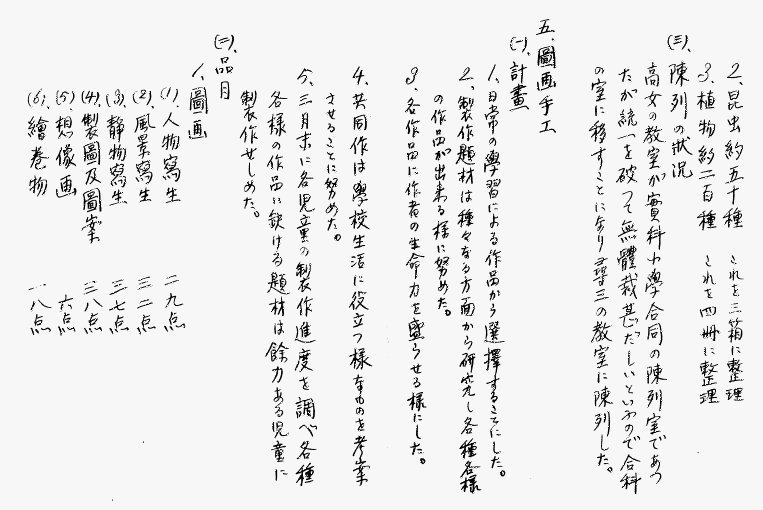 2、昆虫約五十種　これを三箱に整理
3、植物約二百種　これを四冊に整理
(三)、陳列の状況
高女の教室が實科小學合同の陳列室であつ
たが統一を破つて無體裁甚だしいといふので合科
の室に移すことになり尋三の教室に陳列した。
五、圖画手工
(一)、計畫
1、日常の學習による作品から選擇することにした。
2、製作題材は種々なる方面から研究し各種各様
の作品が出来る様に努めた。
3、各作品に作者の生命力を盛らせる様にした。
4、共同作は學校生活に役立つ様なものを考案
させることに努めた。
5、三月末に各児童の製作進度を調べ各種
各様の作品に欠ける題材は餘力ある児童に
製作せしめた。
(二)、品目
1、圖画
(1)、人物寫生　二九点
(2)、風景寫生　三二点
(3)、静物寫生　三七点
(4)、製圖及圖案　三八点
(5)、想像画　六点
(6)、繪巻物　一八点